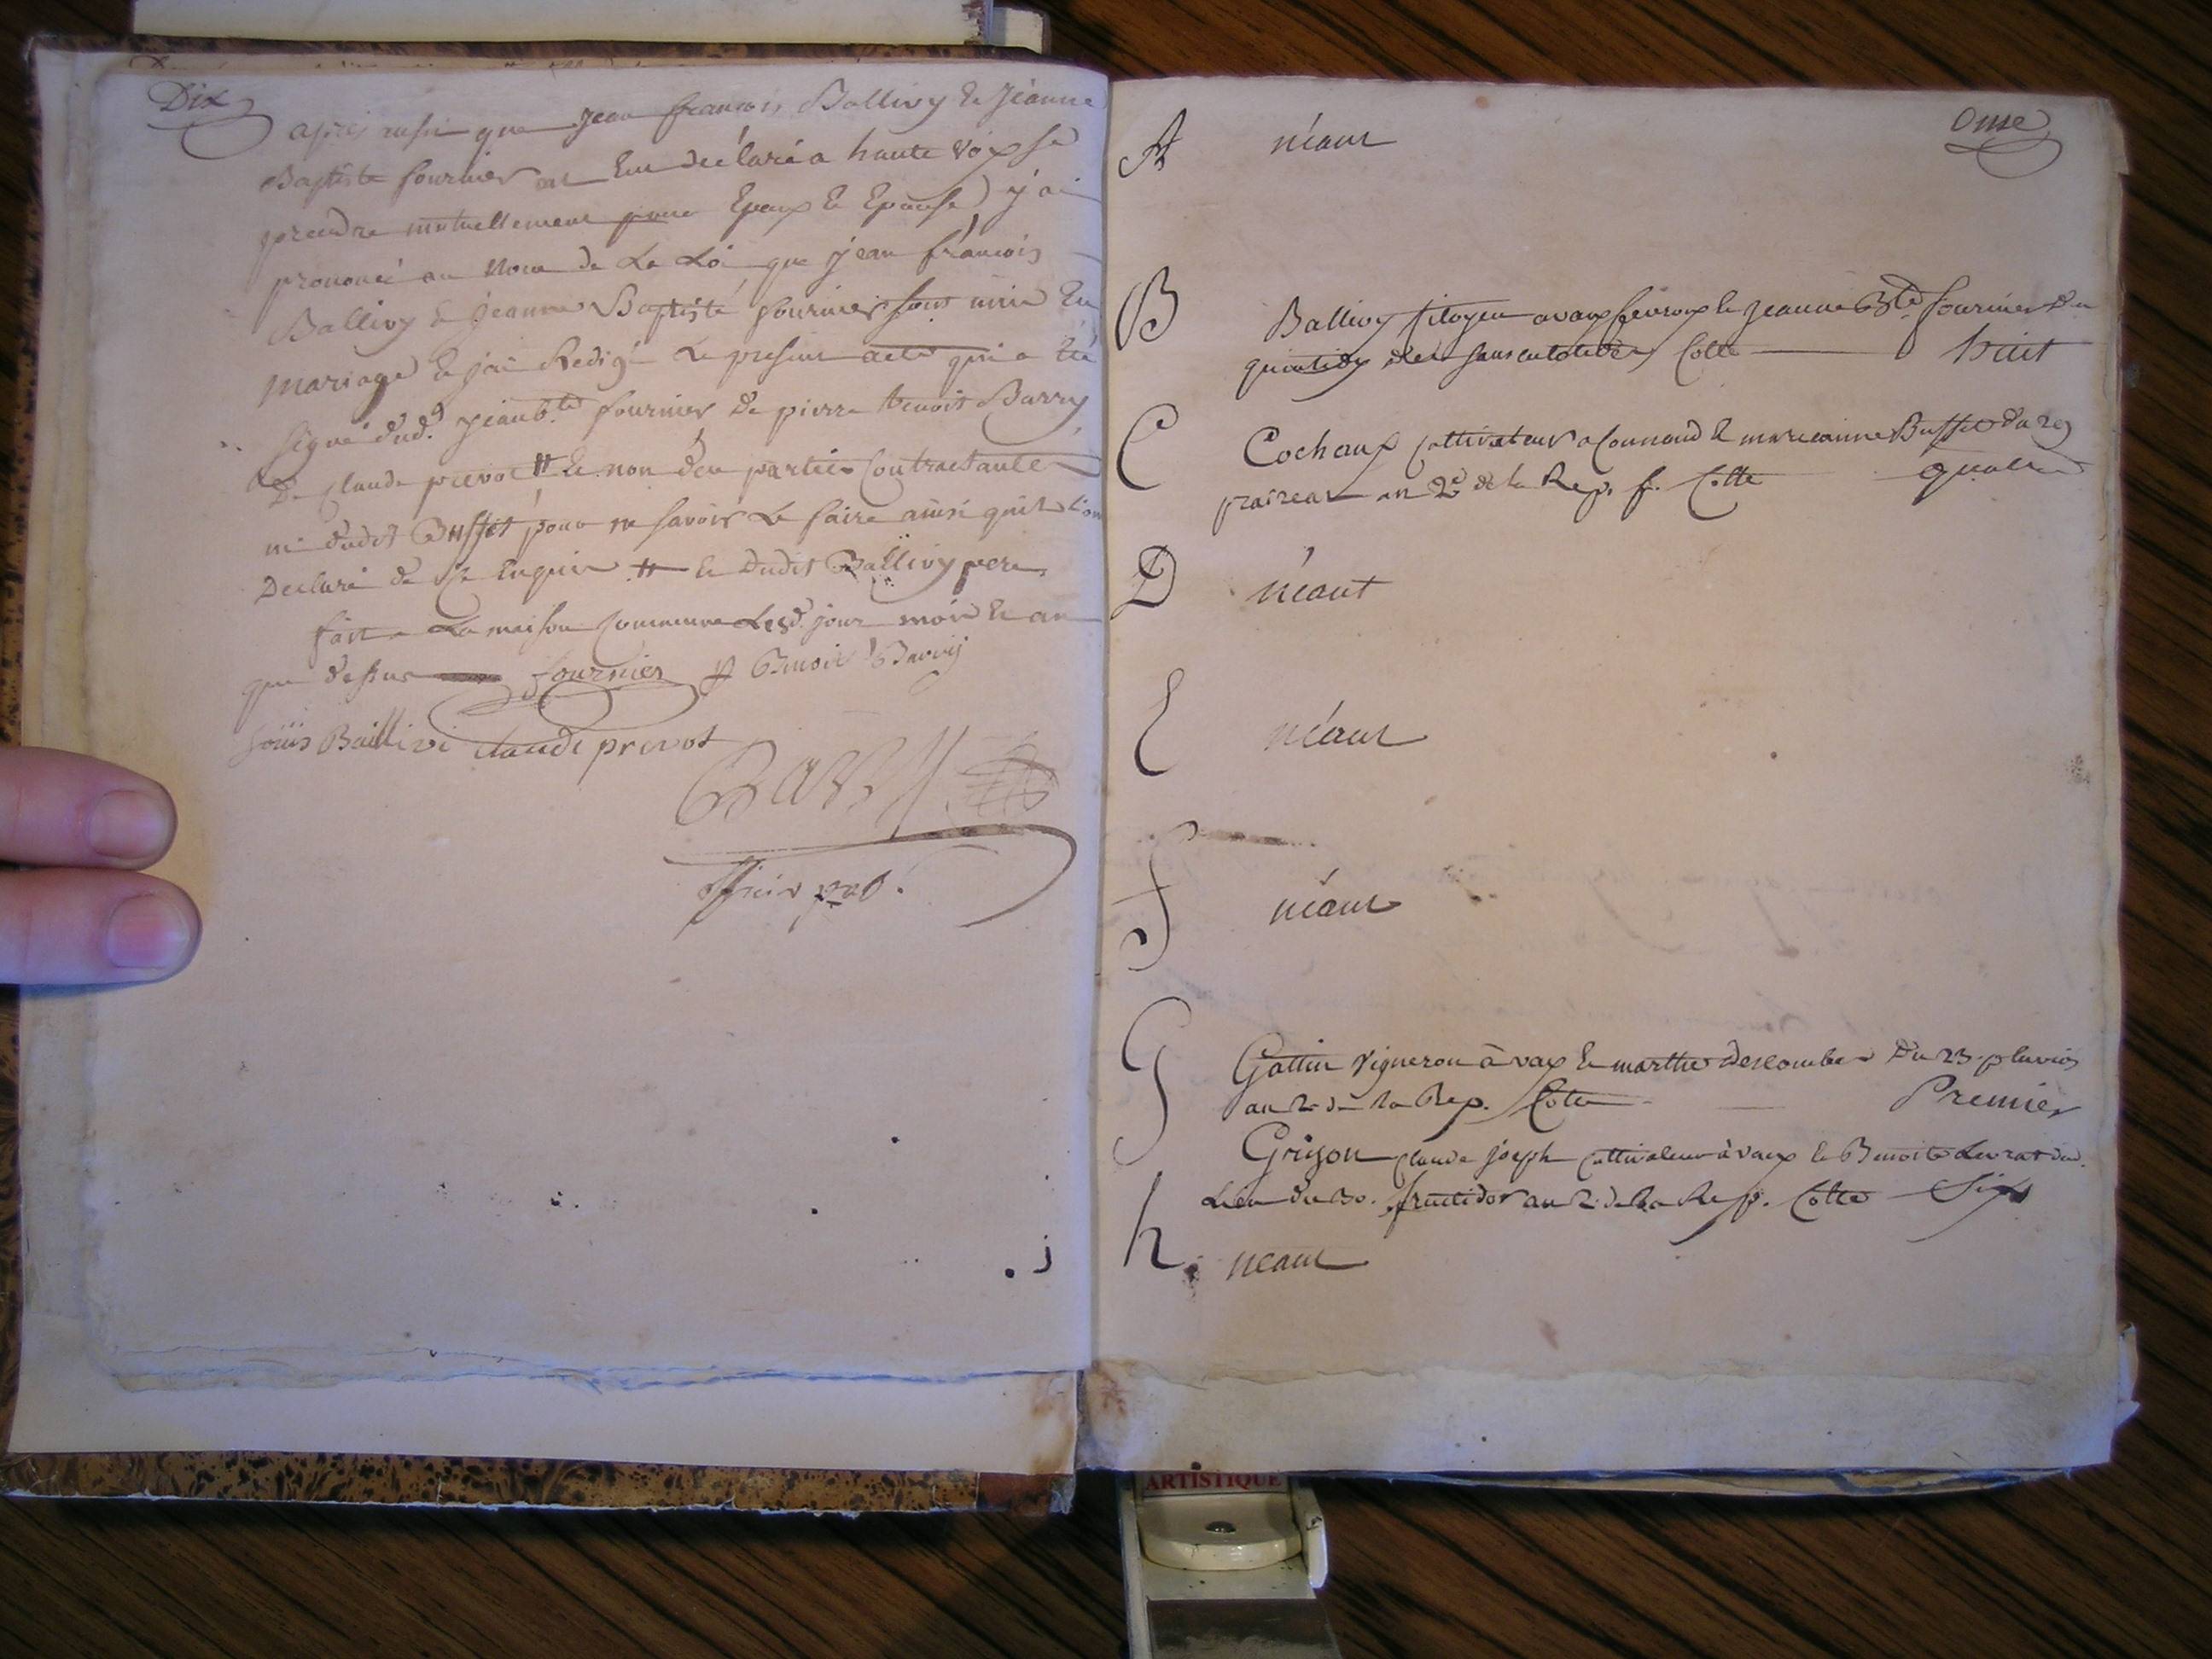 Dix
après aussi que jean francois Ballivy Et Jeanne
Baptiste fournier ont Eu déclaré a haute voix se
prendre mutuellement pour Epoux Et Epouse j'ai
prononcé au nom de La Loi que jean francois
Ballivy Et jeanne Baptiste fournier sont unis En
mariage Et j'ai Redigé Le present acte qui a été
signé dud. fournier de pierre benoit Barry
De Claude prevot # Et non des parties Contractantes
ni dudit Buffet pour ne savoir Le faire ainsi quils l'on
Declaré de ce Enquis # Et Dudit Ballivy pere
fait a La maison Commune Lesd. jour mois Et an
que dessus fournier p Benoit Barry
Louis Baillivi claude prevot
Barry
officier pub.
Onse
A néant
B Ballivy Citoyen a vaux Et jeanne Bte fournier Du
quintidy des sansculotides Cotte huit
C Cochaux Cultivateur a Connand Et marieanne Buffet du 29
prairean an 2e de la Rep. f. Cotte quatre
D néant
E néant
F néant
G Gattin vigneron à vaux Et marthe descombes Du 23 pluvios
an 2 de la Rep. Cotte Premier
Grison Claude joseph Cultivateur à vaux Et Benoite Levrat dud.
Lieu du 30. fructidor an 2 de la Rep. Cotte Six
h néant
ARTISTIQUE